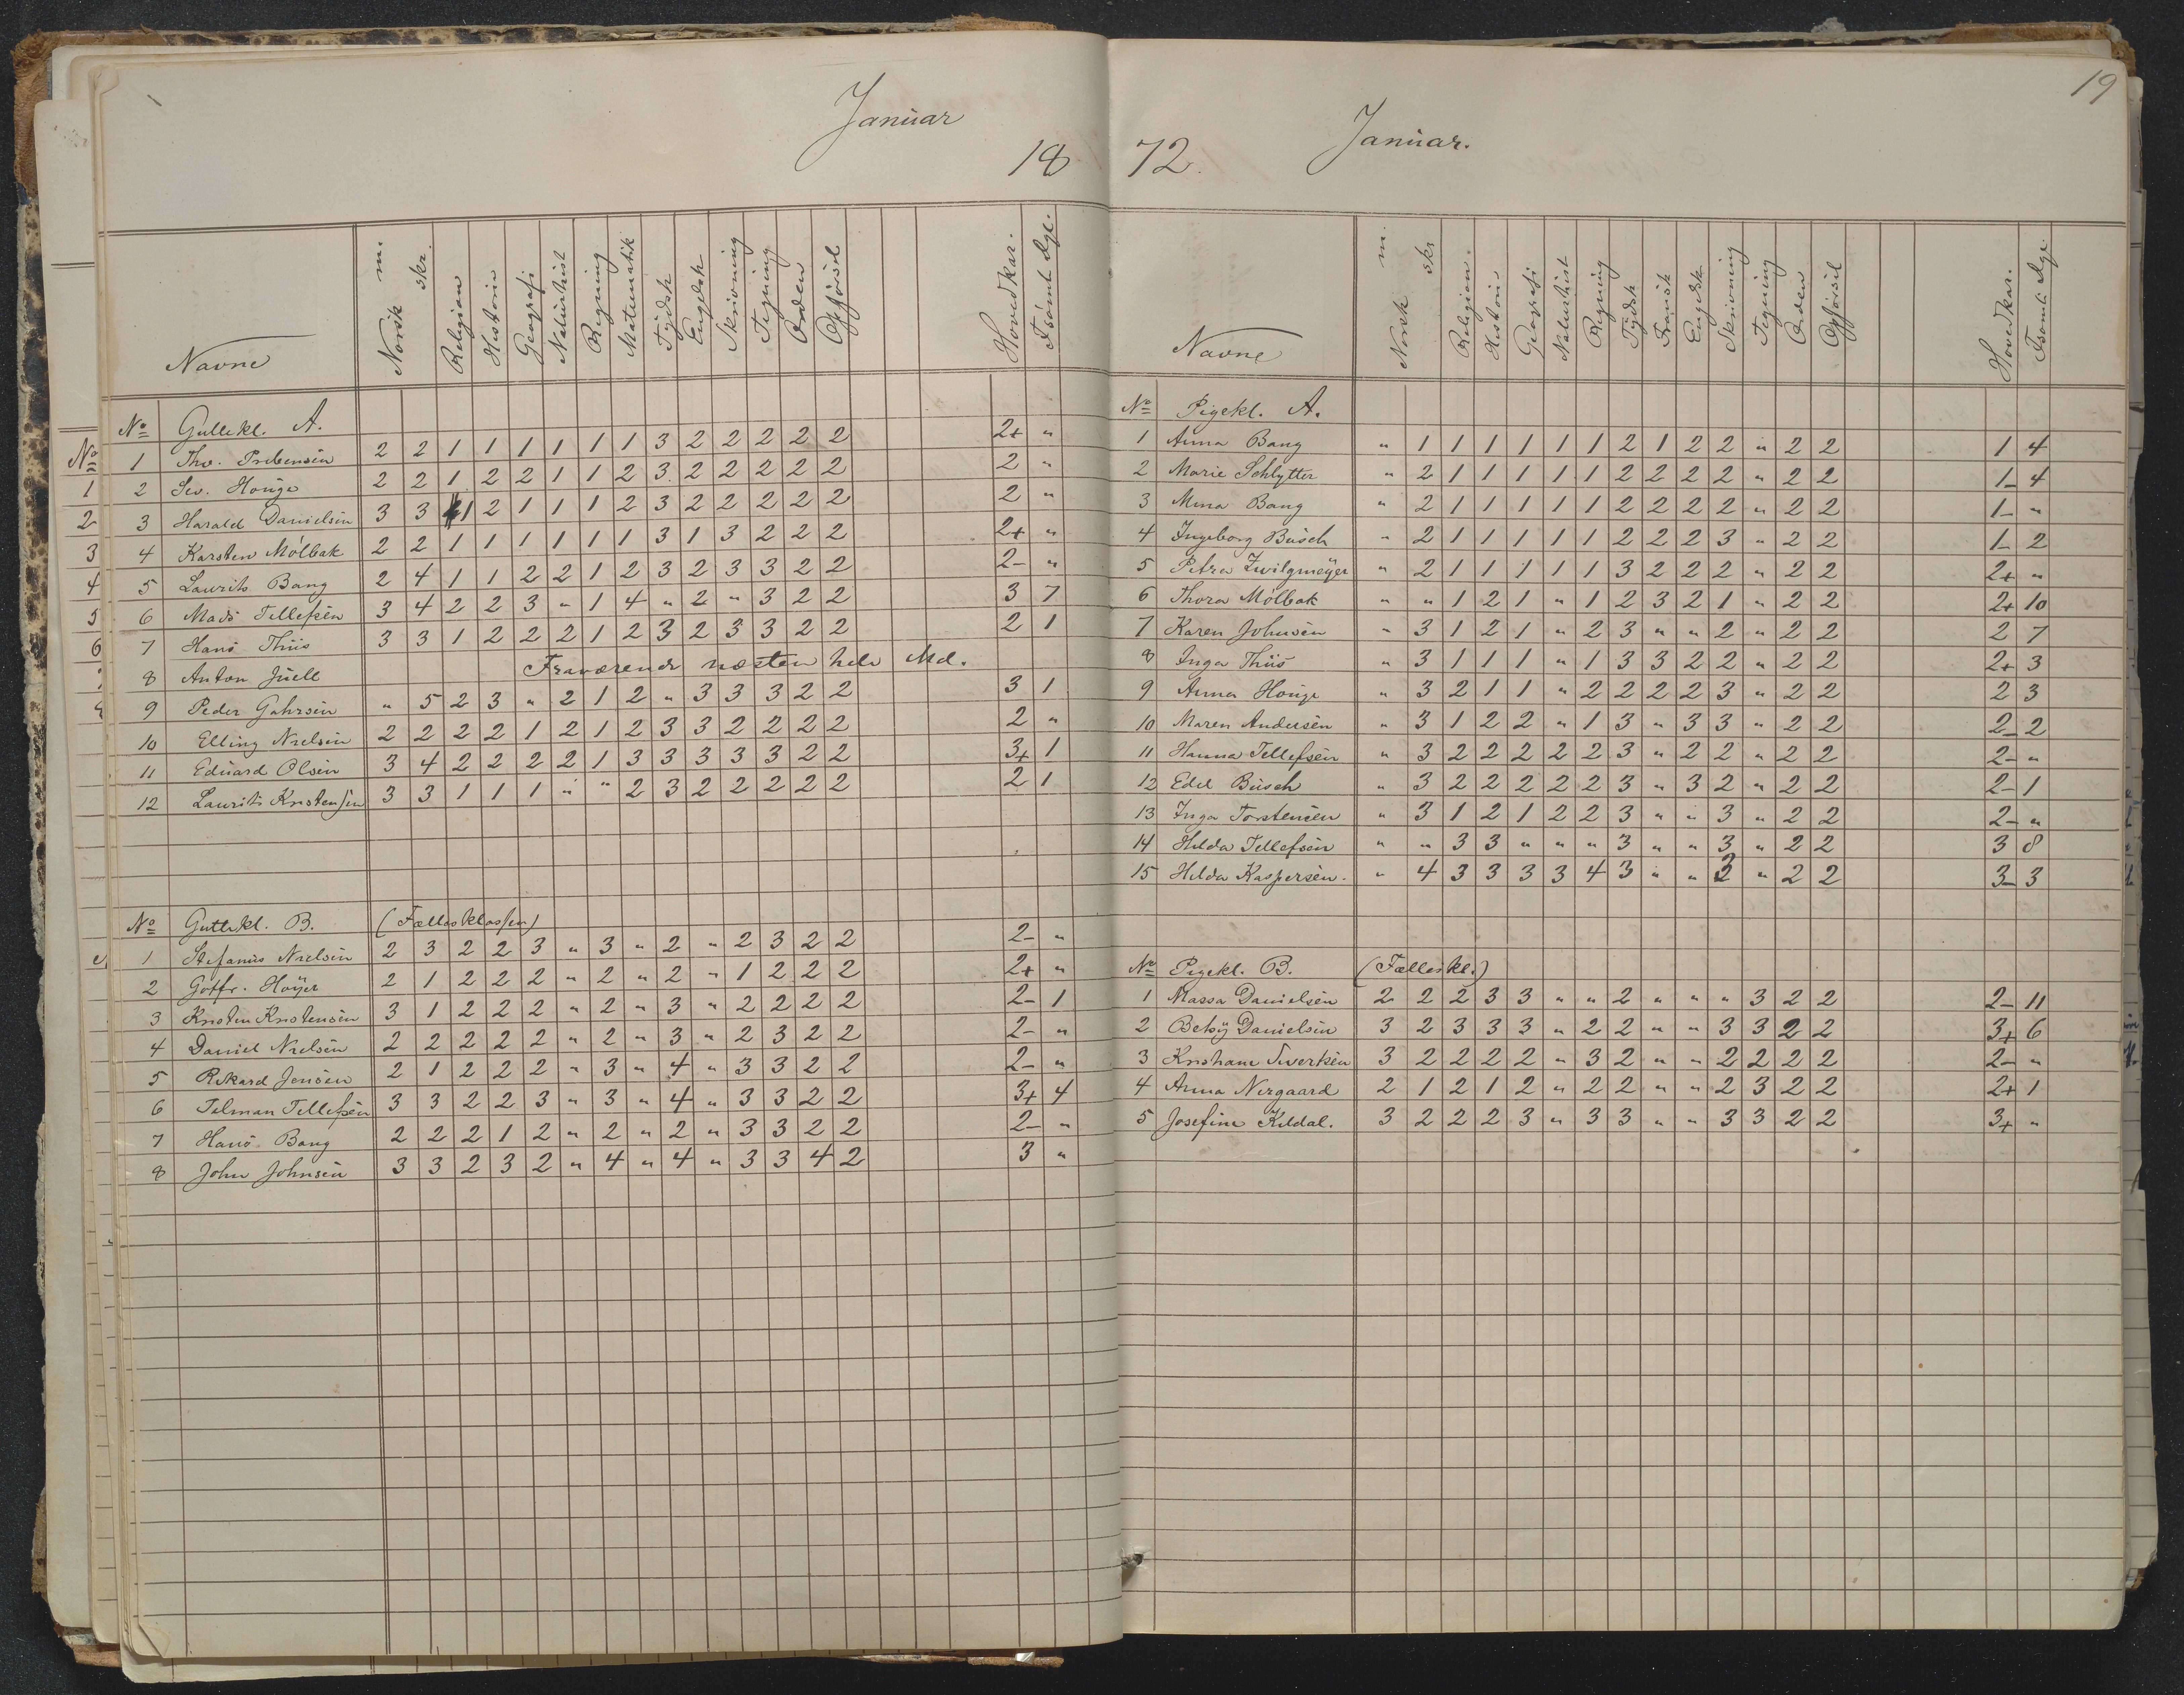 Januar
18
Navne Norsk m. skr. Religion Historie Geografi Naturhist Regning Matematik Tydsk Engelsk Skrivning Tegning Orden Opførsel Hovedkar. Forsømt Dge.
No Guttekl. A.
1 Thv. Prebensen 2 2 1 1 1 1 1 1 3 2 2 2 2 2 2+ "
2 Sev. Houge 2 2 1 2 2 1 1 2 3 2 2 2 2 2 2 "
3 Harald Danielsen 3 3 1 2 1 1 1 2 3 2 2 2 2 2 2 "
4 Karsten Mölbak 2 2 1 1 1 1 1 1 3 1 3 2 2 2 2+ "
5 Laurits Bang 2 4 1 1 2 2 1 2 3 2 3 3 2 2 2- "
6 Mads Tellefsen 3 4 2 2 3 " 1 4 " 2 " 3 2 2 3 7
7 Hans Thiis 3 3 1 2 2 2 1 2 3 2 3 3 2 2 2 1
8 Anton Juell Fraværende næsten hele Md.
9 Peder Gahrsen " 5 2 3 " 2 1 2 " 3 3 3 2 2 3 1
10 Elling Nielsen 2 2 2 2 1 2 1 2 3 3 2 2 2 2 2 "
11 Eduard Olsen 3 4 2 2 2 2 1 3 3 3 3 3 2 2 3+ 1
12 Laurits Kristensen 3 3 1 1 1 " " 2 3 2 2 2 2 2 2 1
No Guttekl. B. (Fællesklassen)
1 Stefanus Nielsen 2 3 2 2 3 " 3 " 2 " 2 3 2 2 2- "
2 Gotfr. Høyer 2 1 2 2 2 " 2 " 2 " 1 2 2 2 2+ "
3 Kristen Kristensen 3 1 2 2 2 " 2 " 3 " 2 2 2 2 2- 1
4 Daniel Nielsen 2 2 2 2 2 " 2 " 3 " 2 3 2 2 2- "
5 Rikard Jensen 2 1 2 2 2 " 3 " 4 " 3 3 2 2 2- "
6 Telman Tellefsen 3 3 2 2 3 " 3 " 4 " 3 3 2 2 3+ 4
7 Hans Bang 2 2 2 1 2 " 2 " 2 " 3 3 2 2 2- "
8 John Johnsen 3 3 2 3 2 " 4 " 4 " 3 3 4 2 3 "
19
Januar.
72.
Navne Norsk m. skr Religion. Historie Geografi Naturhist Regning Tydsk Fransk Engelsk Skrivning Tegning Orden Opførsel Hovedkar. Forsømte Dge.
No Pigekl. A.
1 Anna Bang " 1 1 1 1 1 1 2 1 2 2 " 2 2 1 4
2 Marie Schlytter " 2 1 1 1 1 1 2 2 2 2 " 2 2 1- 4
3 Mina Bang " 2 1 1 1 1 1 2 2 2 2 " 2 2 1- "
4 Ingeborg Busch " 2 1 1 1 1 1 2 2 2 3 " 2 2 1- 2
5 Petra Zwilgmeyer " 2 1 1 1 1 1 3 2 2 2 " 2 2 2+ "
6 Thora Mölbak " " 1 2 1 " 1 2 3 2 1 " 2 2 2+ 10
7 Karen Johnsen " 3 1 2 1 " 2 3 " " 2 " 2 2 2 7
8 Inga Thiis " 3 1 1 1 " 1 3 3 2 2 " 2 2 2+ 3
9 Anna Houge " 3 2 1 1 " 2 2 2 2 3 " 2 2 2 3
10 Maren Andersen " 3 1 2 2 " 1 3 " 3 3 " 2 2 2- 2
11 Hanna Tellefsen " 3 2 2 2 2 2 3 " 2 2 " 2 2 2- "
12 Edel Busch " 3 2 2 2 2 2 3 " 3 2 " 2 2 2- 1
13 Inga Torstensen " 3 1 2 1 2 2 3 " " 3 " 2 2 2- "
14 Hilda Tellefsen " " 3 3 " " " 3 " " 3 " 2 2 3 8
15 Hilda Kaspersen. " 4 3 3 3 3 4 3 " " 3 " 2 2 3- 3
No Pigekl. B. (Fælleskl.)
1 Massa Danielsen 2 2 2 3 3 " " 2 " " " 3 2 2 2- 11
2 Betsy Danielsen 3 2 3 3 3 " 2 2 " " 3 3 2 2 3+ 6
3 Kristiane Sivertsen 3 2 2 2 2 " 3 2 " " 2 2 2 2 2- "
4 Anna Nergaard 2 1 2 1 2 " 2 2 " " 2 3 2 2 2+ 1
5 Josefine Kildal. 3 2 2 2 3 " 3 3 " " 3 3 2 2 3+ "